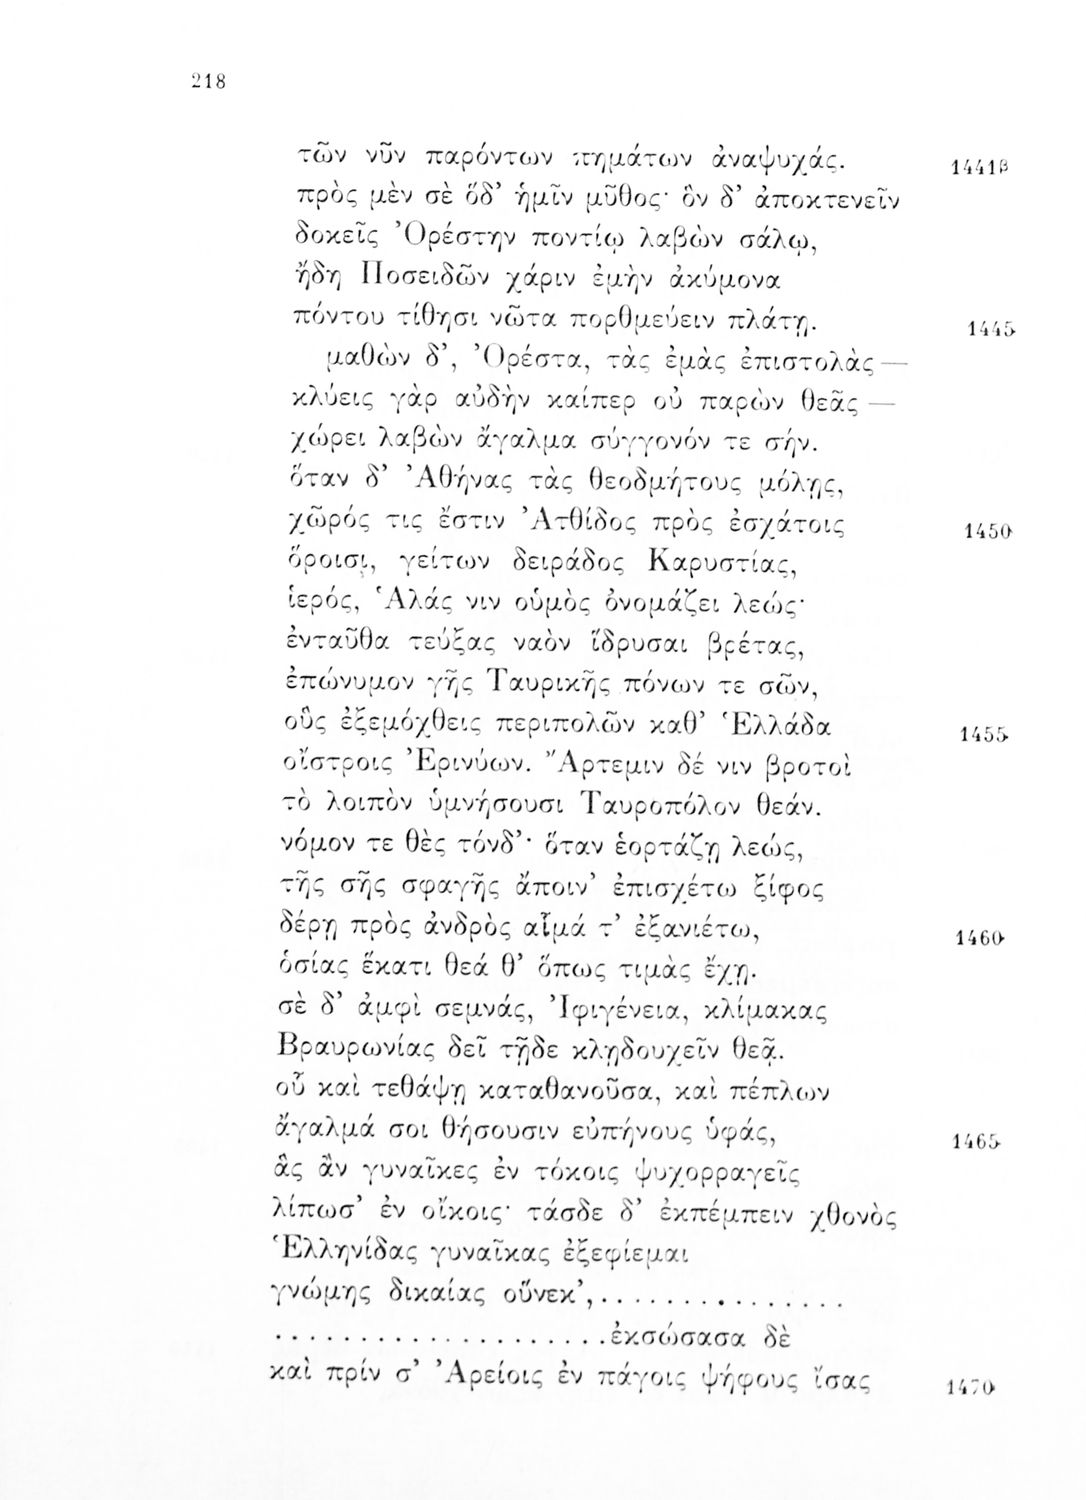 218
τῶν νῦν παρόντων πημάτων ἀναψυχάς. 1441β
πρὸς μὲν σὲ ὅδ’ ἡμῖν μῦθος· ὃν δ’ ἀποκτενεῖν
δοκεῖς Ὀρέστην ποντίῳ λαβὼν σάλῳ,
ἤδη Ποσειδῶν χάριν ἐμὴν ἀκύμονα
πόντου τίθησι νῶτα πορθμεύειν πλάτῃ. 1445
μαθὼν δ’, Ὀρέστα, τὰς ἐμὰς ἐπιστολὰς —
κλύεις γὰρ αὐδὴν καίπερ οὐ παρὼν θεᾶς —
χώρει λαβὼν ἄγαλμα σύγγονόν τε σήν.
ὅταν δ’ Ἀθήνας τὰς θεοδμήτους μόλῃς,
χῶρός τις ἔστιν Ἀτθίδος πρὸς ἐσχάτοις 1450
ὅροισι, γείτων δειράδος Καρυστίας,
ἱερός, Ἁλάς νιν οὑμὸς ὀνομάζει λεώς·
ἐνταῦθα τεύξας ναὸν ἵδρυσαι βρέτας,
ἐπώνυμον γῆς Ταυρικῆς πόνων τε σῶν,
οὓς ἐξεμόχθεις περιπολῶν καθ’ Ἑλλάδα 1455
οἴστροις Ἐρινύων. Ἄρτεμιν δέ νιν βροτοὶ
τὸ λοιπὸν ὑμνήσουσι Ταυροπόλον θεάν.
νόμον τε θὲς τόνδ’· ὅταν ἑορτάζῃ λεώς,
τῆς σῆς σφαγῆς ἄποιν’ ἐπισχέτω ξίφος
δέρῃ πρὸς ἀνδρὸς αἷμά τ’ ἐξανιέτω, 1460
ὁσίας ἕκατι θεά θ’ ὅπως τιμὰς ἔχῃ.
σὲ δ’ ἀμφὶ σεμνάς, Ἰφιγένεια, κλίμακας
Βραυρωνίας δεῖ τῇδε κλῃδουχεῖν θεᾷ.
οὗ καὶ τεθάψῃ κατθανοῦσα, καὶ πέπλων
ἄγαλμά σοι θήσουσιν εὐπήνους ὑφάς, 1465
ἃς ἂν γυναῖκες ἐν τόκοις ψυχορραγεῖς
λίπωσ’ ἐν οἴκοις· τάσδε δ’ ἐκπέμπειν χθονὸς
Ἑλληνίδας γυναῖκας ἐξεφίεμαι
γνώμης δικαίας οὕνεκ’,...............
....................ἐκσώσασα δὲ
καὶ πρίν σ’ Ἀρείοις ἐν πάγοις ψήφους ἴσας 1470